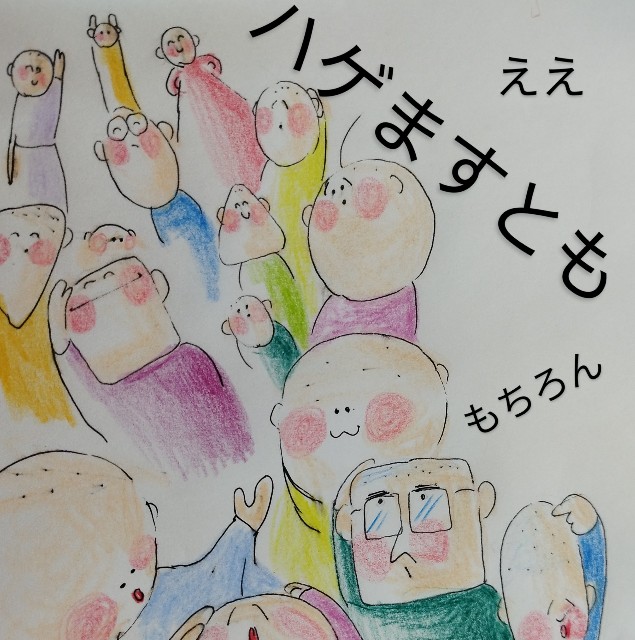 ええ
ハゲますとも
もちろん